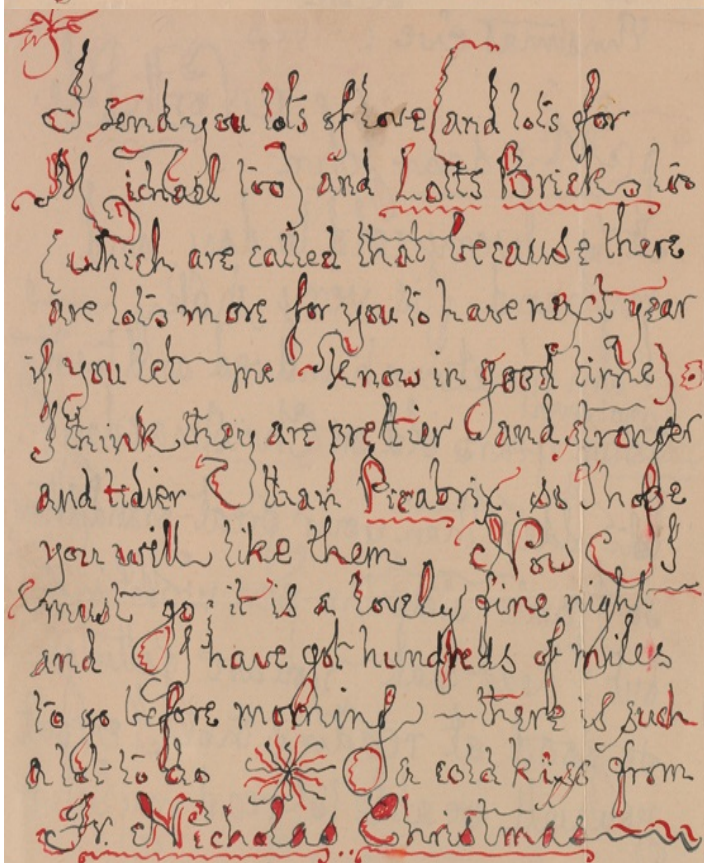 I send you lots of love (and lots for
Michael too) and Lotts Bricks too
(which are called that because there
are lots more for you to have next year
if you let me know in good time)
I think they are prettier and stronger
and tidier than Picabrix so I hope
you will like them Now I
must go: it is a lovely fine night
and I have got hundreds of miles
to go before morning — there is such
a lot to do a cold kiss from
Fr. Nicholas Christmas